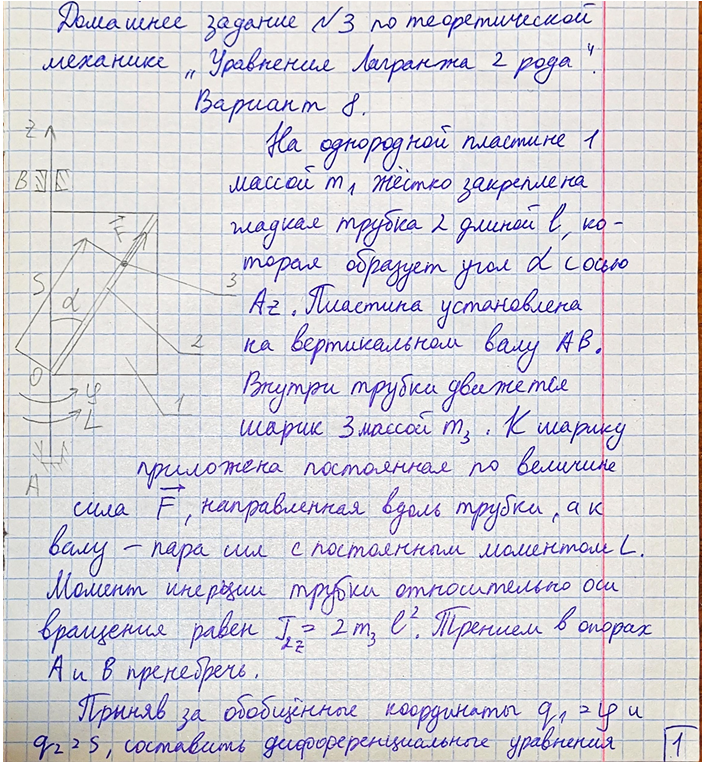 Домашнее задание №3 по теоретической
механике „Уравнения Лагранжа 2 рода".
Вариант 8.
На однородной пластине 1
массой m₁ жёстко закреплена
гладкая трубка 2 длиной l, ко-
торая образует угол α с осью
Az. Пластина установлена
на вертикальном валу AB.
Внутри трубки движется
шарик 3 массой m₃. К шарику
приложена постоянная по величине
сила F⃗, направленная вдоль трубки, а к
валу – пара сил с постоянным моментом L.
Момент инерции трубки относительно оси
вращения равен I₂z = 2m₃l². Трением в опорах
A и B пренебречь.
Приняв за обобщённые координаты q₁ = φ и
q₂ = s, составить дифференциальные уравнения
1
z
B
F⃗
S
α
3
2
O
1
φ
L
A